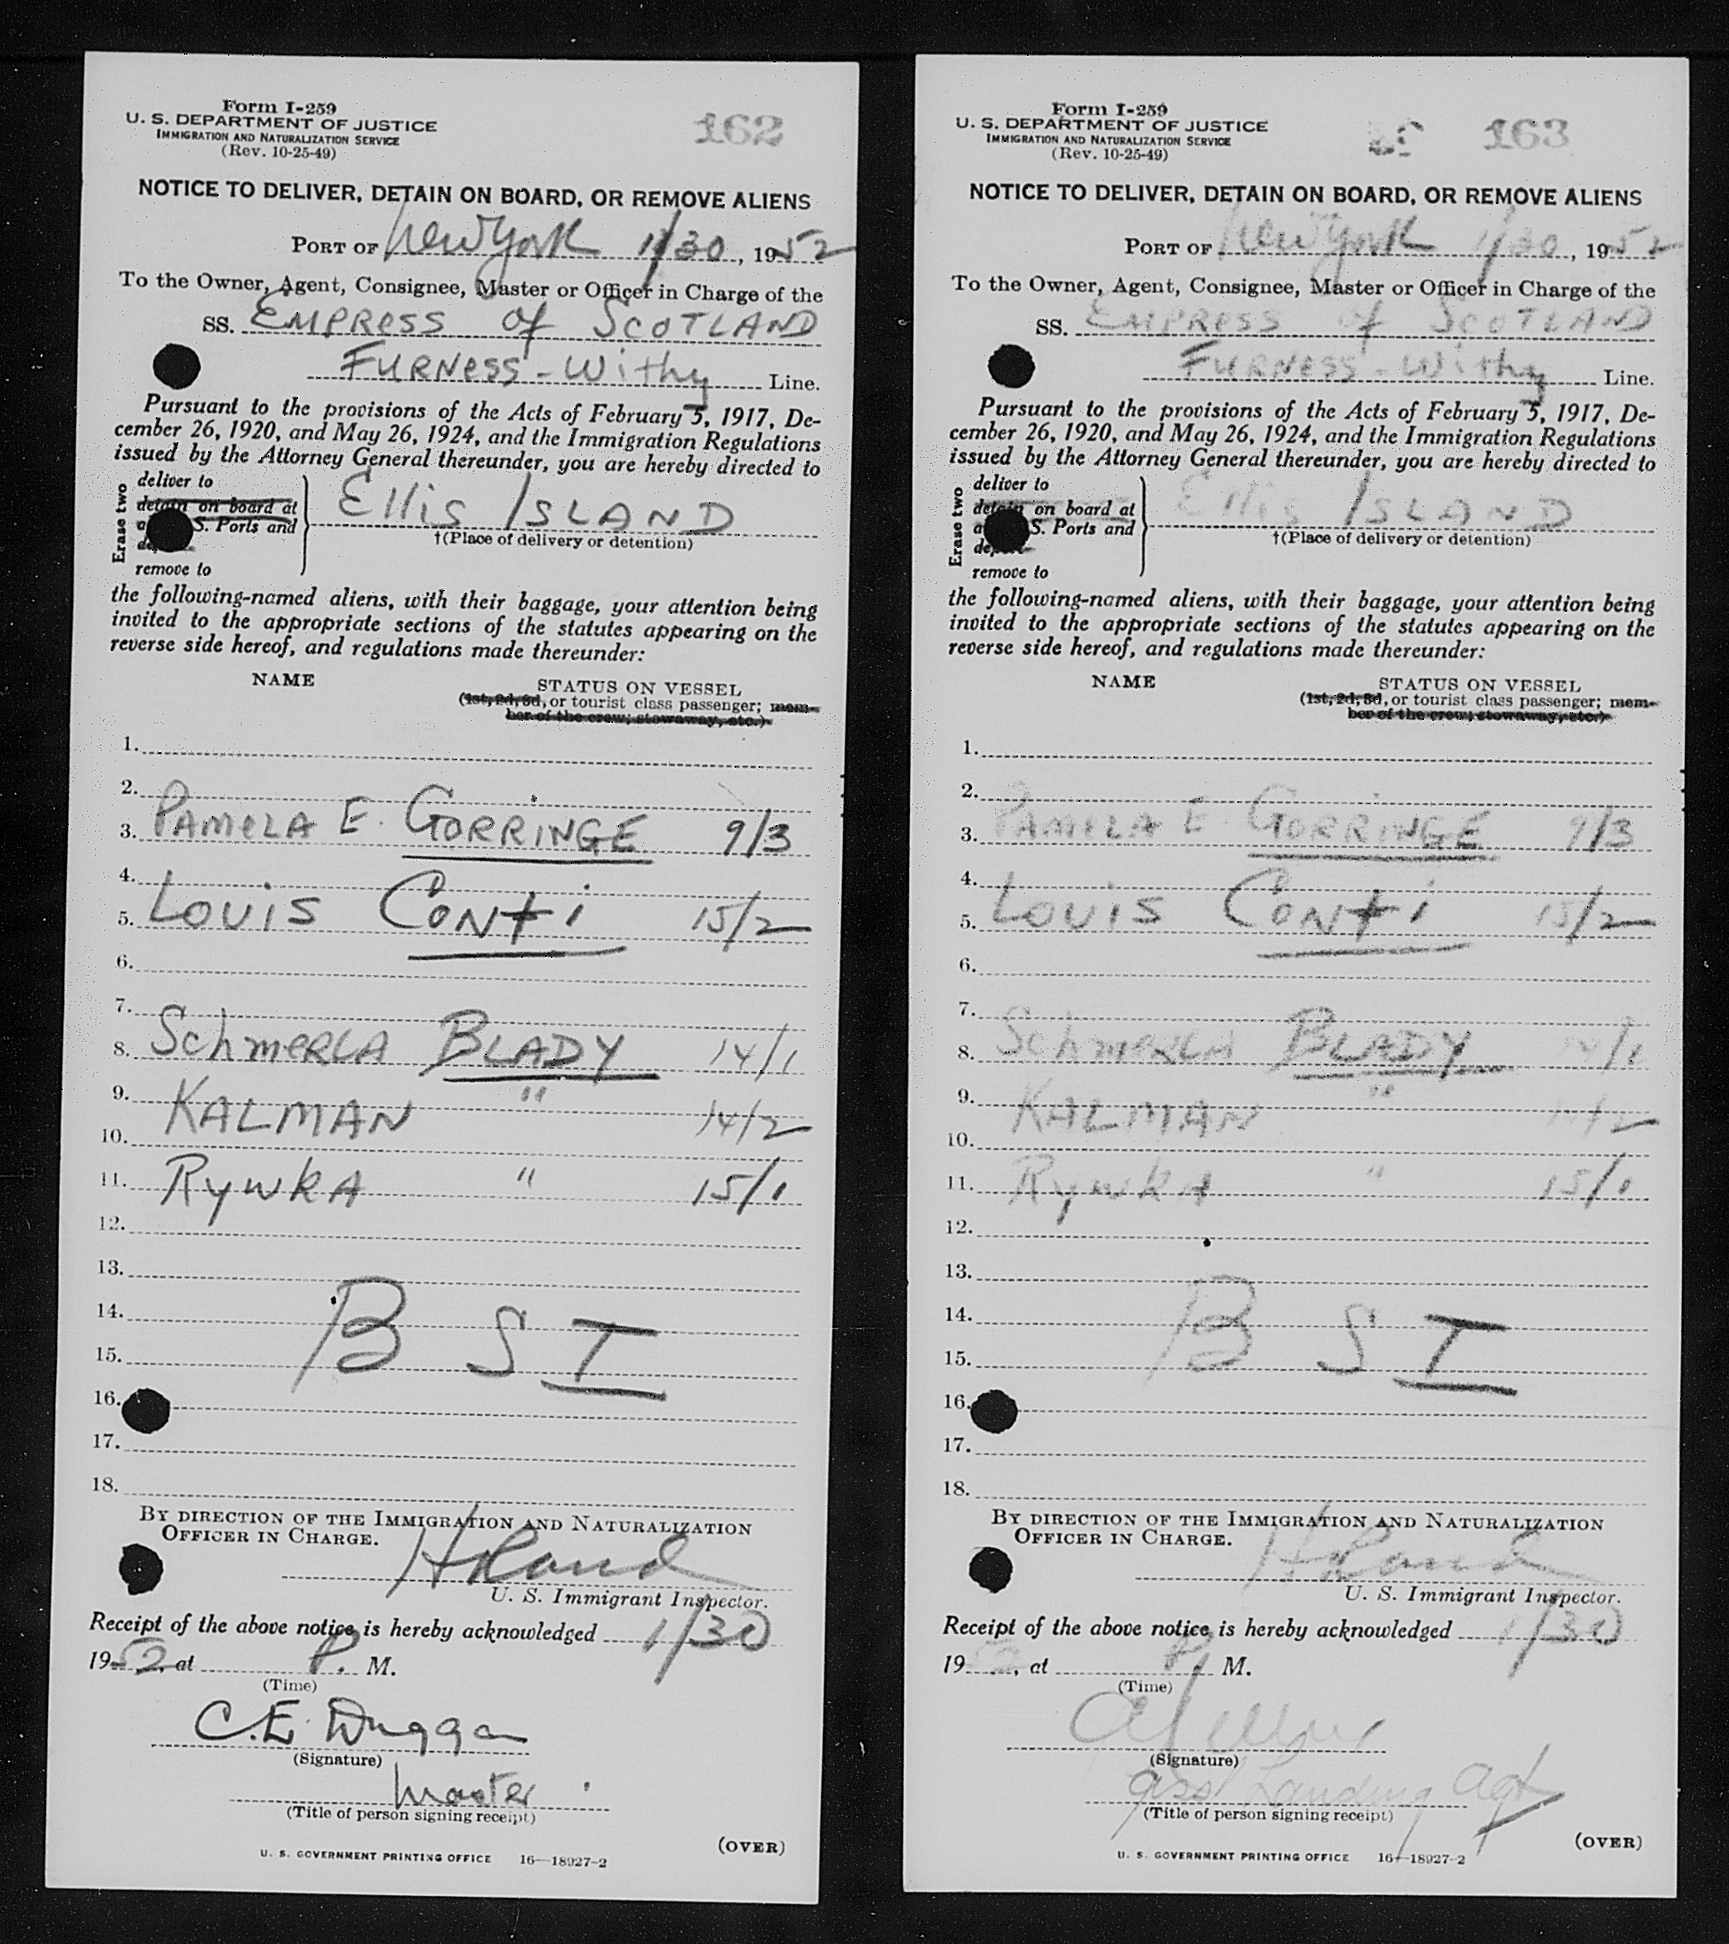 Form I-259
U. S. DEPARTMENT OF JUSTICE
IMMIGRATION AND NATURALIZATION SERVICE
(Rev. 10-25-49)
162
NOTICE TO DELIVER, DETAIN ON BOARD, OR REMOVE ALIENS
PORT OF New York 1/30, 1952
To the Owner, Agent, Consignee, Master or Officer in Charge of the
SS. EMPRESS of SCOTLAND
FURNESS - Withy Line.
Pursuant to the provisions of the Acts of February 5, 1917, De-
cember 26, 1920, and May 26, 1924, and the Immigration Regulations
issued by the Attorney General thereunder, you are hereby directed to
Erase two
deliver to
detain on board at
S. Ports and
remove to
Ellis ISLAND
†(Place of delivery or detention)
the following-named aliens, with their baggage, your attention being
invited to the appropriate sections of the statutes appearing on the
reverse side hereof, and regulations made thereunder:
NAME
STATUS ON VESSEL
(1st, 2d, 3d, or tourist class passenger; mem-
ber of the crew; stowaway, etc.)
1.
2.
3. PAMELA E. GORRINGE 9/3
4.
5. LOUIS CONti 15/2
6.
7.
8. SchmeRLA BLADY 14/1
9.
KALMAN " 14/2
10.
11. RywkA " 15/1
12.
13.
14.
B S I
15.
16.
17.
18.
BY DIRECTION OF THE IMMIGRATION AND NATURALIZATION
OFFICER IN CHARGE.
U. S. Immigrant Inspector.
Receipt of the above notice is hereby acknowledged 1/30
1952, at P. M.
(Time)
C.E. Duggan
(Signature)
Master
(Title of person signing receipt)
(OVER)
U. S. GOVERNMENT PRINTING OFFICE 16—18927-2
Form I-259
U. S. DEPARTMENT OF JUSTICE
IMMIGRATION AND NATURALIZATION SERVICE
(Rev. 10-25-49)
163
NOTICE TO DELIVER, DETAIN ON BOARD, OR REMOVE ALIENS
PORT OF New York 1/30, 1952
To the Owner, Agent, Consignee, Master or Officer in Charge of the
SS. EMPRESS of SCOTLAND
FURNESS - Withy Line.
Pursuant to the provisions of the Acts of February 5, 1917, De-
cember 26, 1920, and May 26, 1924, and the Immigration Regulations
issued by the Attorney General thereunder, you are hereby directed to
Erase two
deliver to
detain on board at
S. Ports and
remove to
Ellis ISLAND
†(Place of delivery or detention)
the following-named aliens, with their baggage, your attention being
invited to the appropriate sections of the statutes appearing on the
reverse side hereof, and regulations made thereunder:
NAME
STATUS ON VESSEL
(1st, 2d, 3d, or tourist class passenger; mem-
ber of the crew; stowaway, etc.)
1.
2.
3. PAMELA E GORRINGE 9/3
4.
5. LOUIS CONti 15/2
6.
7.
8. SchmeRLA BLADY 14/1
9.
KALMAN " 14/2
10.
11. RywkA " 15/1
12.
13.
14.
B S I
15.
16.
17.
18.
BY DIRECTION OF THE IMMIGRATION AND NATURALIZATION
OFFICER IN CHARGE.
U. S. Immigrant Inspector.
Receipt of the above notice is hereby acknowledged 1/30
1952, at P. M.
(Time)
(Signature)
Asst Landing Agt
(Title of person signing receipt)
(OVER)
U. S. GOVERNMENT PRINTING OFFICE 16—18927-2